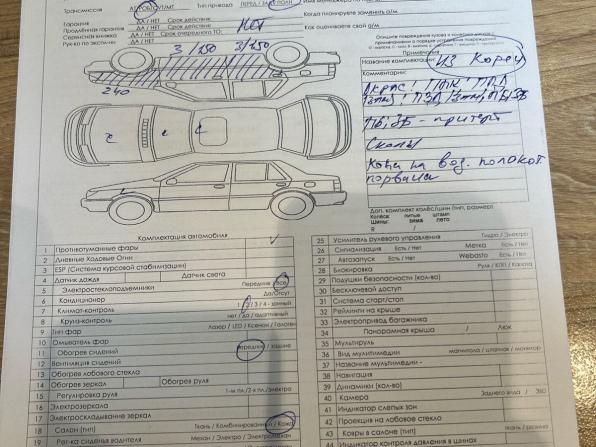 Трансмиссия АВТОМАТ/МТ Тип привода ПЕРЕД / ЗАД / ПОЛН
Гарантия ДА / НЕТ Срок действия:
Продлённая гарантия ДА / НЕТ Срок действия: НЕТ
Сервисная книжка ДА / НЕТ Срок очередного ТО:
Рук-ко по эксплуат. ДА / НЕТ
Когда планируете заменить а/м
Как оцениваете свой а/м
3 / 250 3/250
240
Примечания
Название комплектации: из Кореи
Комментарии:
ПБ, ЗБ - притерт
Сколы
Кожа на вод.
порвана
Доп. комплект колёс/шин (тип, размер)
Колёса: литые штамп
Шины: зима лето
R /
Комплектация автомобиля
1 Противотуманные фары
2 Дневные Ходовые Огни
3 ESP (Система курсовой стабилизации)
4 Датчик дождя Датчик света
5 Электростеклоподъемники Передние / Все
6 Кондиционер Да/Отсут
7 Климат-контроль 1 / 2 / 3 / 4 - зонный
8 Круиз-контроль нет / да / адаптивный
9 Тип фар Лазер / LED / Ксенон / Галоген
10 Омыватель фар
11 Обогрев сидений передние / задние
12 Вентиляция сидений
13 Обогрев лобового стекла
14 Обогрев зеркал Обогрев руля
15 Регулировка руля
16 Электрозеркала
17 Электроскладывание зеркал
18 Салон (тип) Ткань / Комбинированный / Кожа
Рег-ка сиденья водителя Механ / Электро / Электромехан
25 Усилитель рулевого управления Гидро / Электро
26 Сигнализация Есть / Нет Метка Есть / Нет
27 Автозапуск Есть / Нет Webasto Есть / Нет
28 Блокировка Руля / КПП / Капота
29 Подушки безопасности (кол-во)
30 Бесключевой доступ
31 Система старт/стоп
32 Рейлинги на крыше
33 Электропривод багажника
34 Панорамная крыша / Люк
35 Мультируль
36 Вид мультимедии магнитола / штатная / монитор
37 Название мультимедии -
38 Навигация
39 Динамики (кол-во)
40 Камера Заднего вида / 360
41 Индикатор слепых зон
42 Проекция на лобовое стекло
43 Ковры в салоне (тип) Ткань /
Индикатор контроля давления в шинах